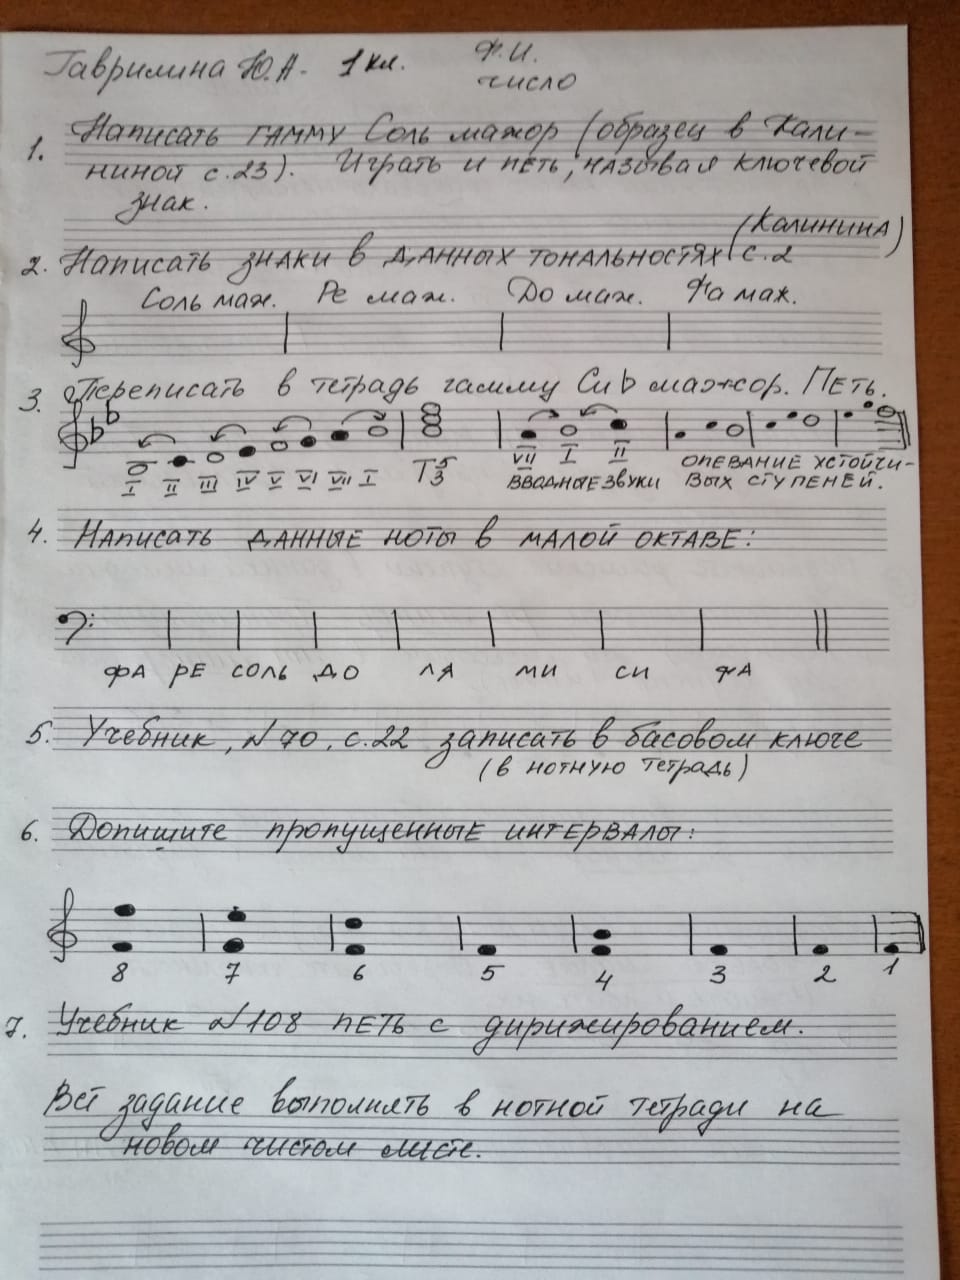 Гаврилина Ю.А. 1 кл. Ф.И.
число
1. Написать гамму Соль мажор (образец в Кали-
ниной с.23). Играть и петь, называя ключевой
знак.
2. Написать знаки в данных тональностях (Калинина)
с.2
Соль маж. Ре маж. До маж. Фа маж.
3. Переписать в тетрадь гамму Си♭ мажор. Петь.
I II III IV V VI VII I Т5/3 VII I II опевание устойчи-
вводные звуки вых ступеней.
4. Написать данные ноты в малой октаве:
фа ре соль до ля ми си фа
5. Учебник, №70, с.22 записать в басовом ключе
(в нотную тетрадь)
6. Допишите пропущенные интервалы:
8 7 6 5 4 3 2 1
7. Учебник №108 петь с дирижированием.
Всё задание выполнять в нотной тетради на
новом чистом листе.